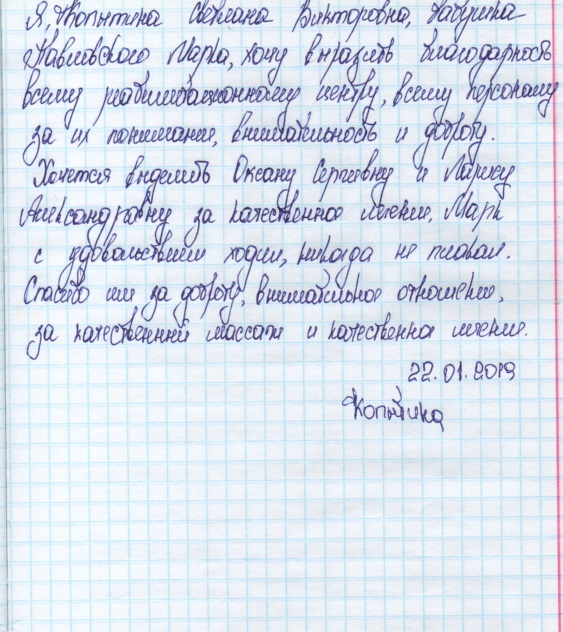 Я, Копытина Светлана Викторовна, бабушка
Павловского Марка, хочу выразить благодарность
всему реабилитационному центру, всему персоналу
за их понимание, внимательность и доброту.
Хочется выделить Оксану Сергеевну и Ларису
Александровну за качественное лечение, Марк
с удовольствием ходил, никогда не плакал.
Спасибо им за доброту, внимательное отношение,
за качественный массаж и качественное лечение.
22.01.2019
Копытина